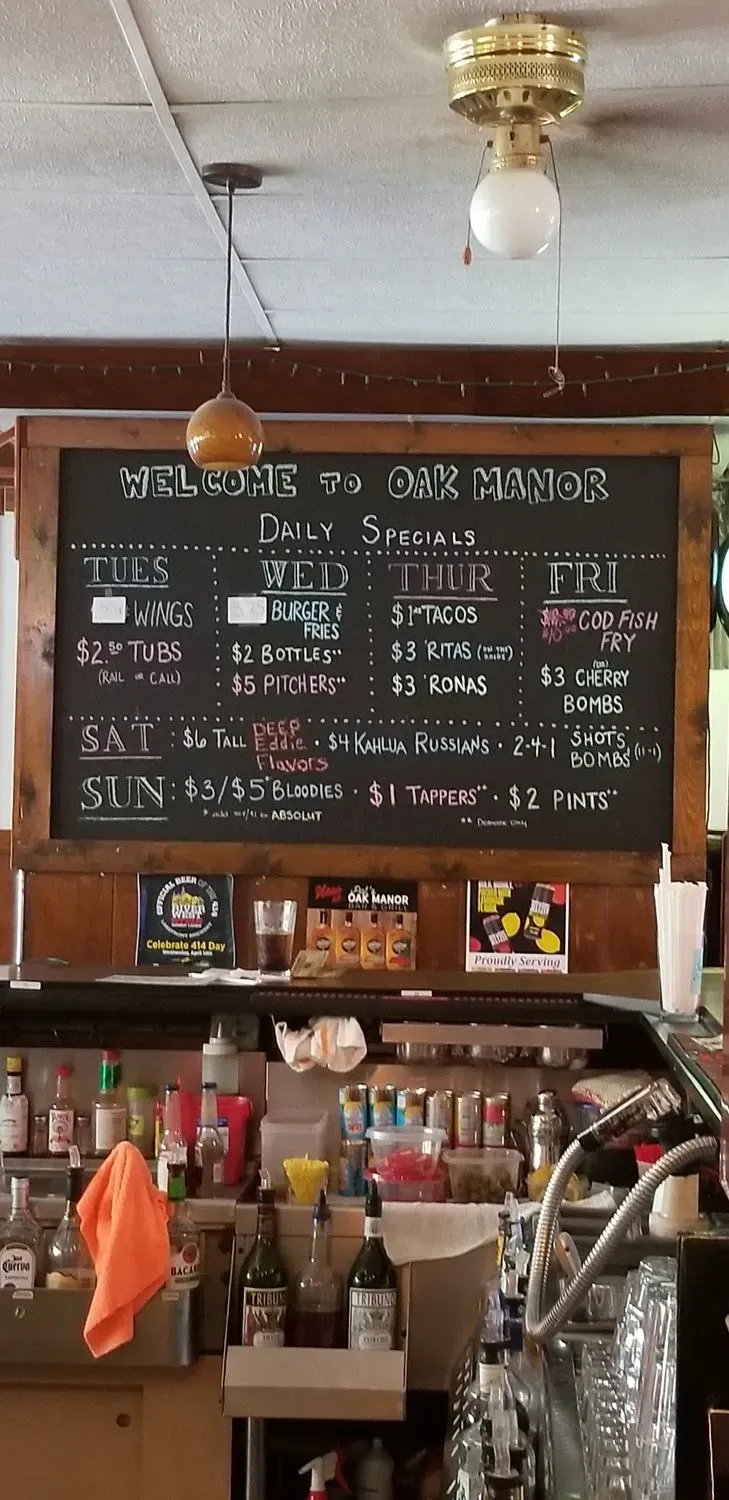 WELCOME TO OAK MANOR
DAILY SPECIALS
TUES
WINGS
$2.50 TUBS
(RAIL OR CALL)
WED
BURGER &
FRIES
$2 BOTTLES**
$5 PITCHERS**
THUR
TACOS
$3 'RITAS (ON THE ROCKS)
$3 'RONAS
FRI
COD FISH
FRY
$3 CHERRY
BOMBS
SAT : $6 TALL DEEP Eddie Flavors • $4 KAHLUA RUSSIANS • 2-4-1 SHOTS BOMBS (11-1)
SUN : $3/$5* BLOODIES • $1 TAPPERS** • $2 PINTS**
ABSOLUT
** Domestic Only
OFFICIAL BEER OF THE
RIVER
WEST
Celebrate 414 Day
Wednesday, April 14th
OAK MANOR
BAR & GRILL
Proudly Serving
Cuervo
BACARDI
TRIBUNO
TRIBUNO